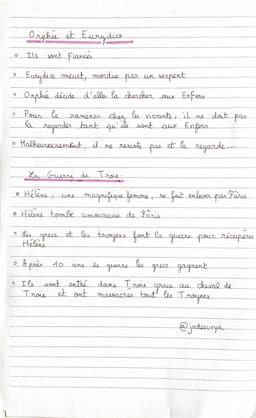 Orphée et Eurydice
• Ils sont fiancés
• Eurydice meurt, mordue par un serpent
• Orphée décide d'aller la chercher aux Enfers
• Pour la ramener chez les vivants, il ne doit pas
la regarder tant qu'ils sont aux Enfers
• Malheureusement, il ne resiste pas et la regarde...
La Guerre de Troie
• Hélène, une magnifique femme, se fait enlever par Pâris
• Hélène tombe amoureuse de Pâris
• Les grecs et les troyens font la guerre pour récupérer
Hélène
• Après 10 ans de guerre les grecs gagnent
• Ils sont entré dans Troie grace au cheval de
Troie et ont massacrés tout les Troyens.
@jadesurya